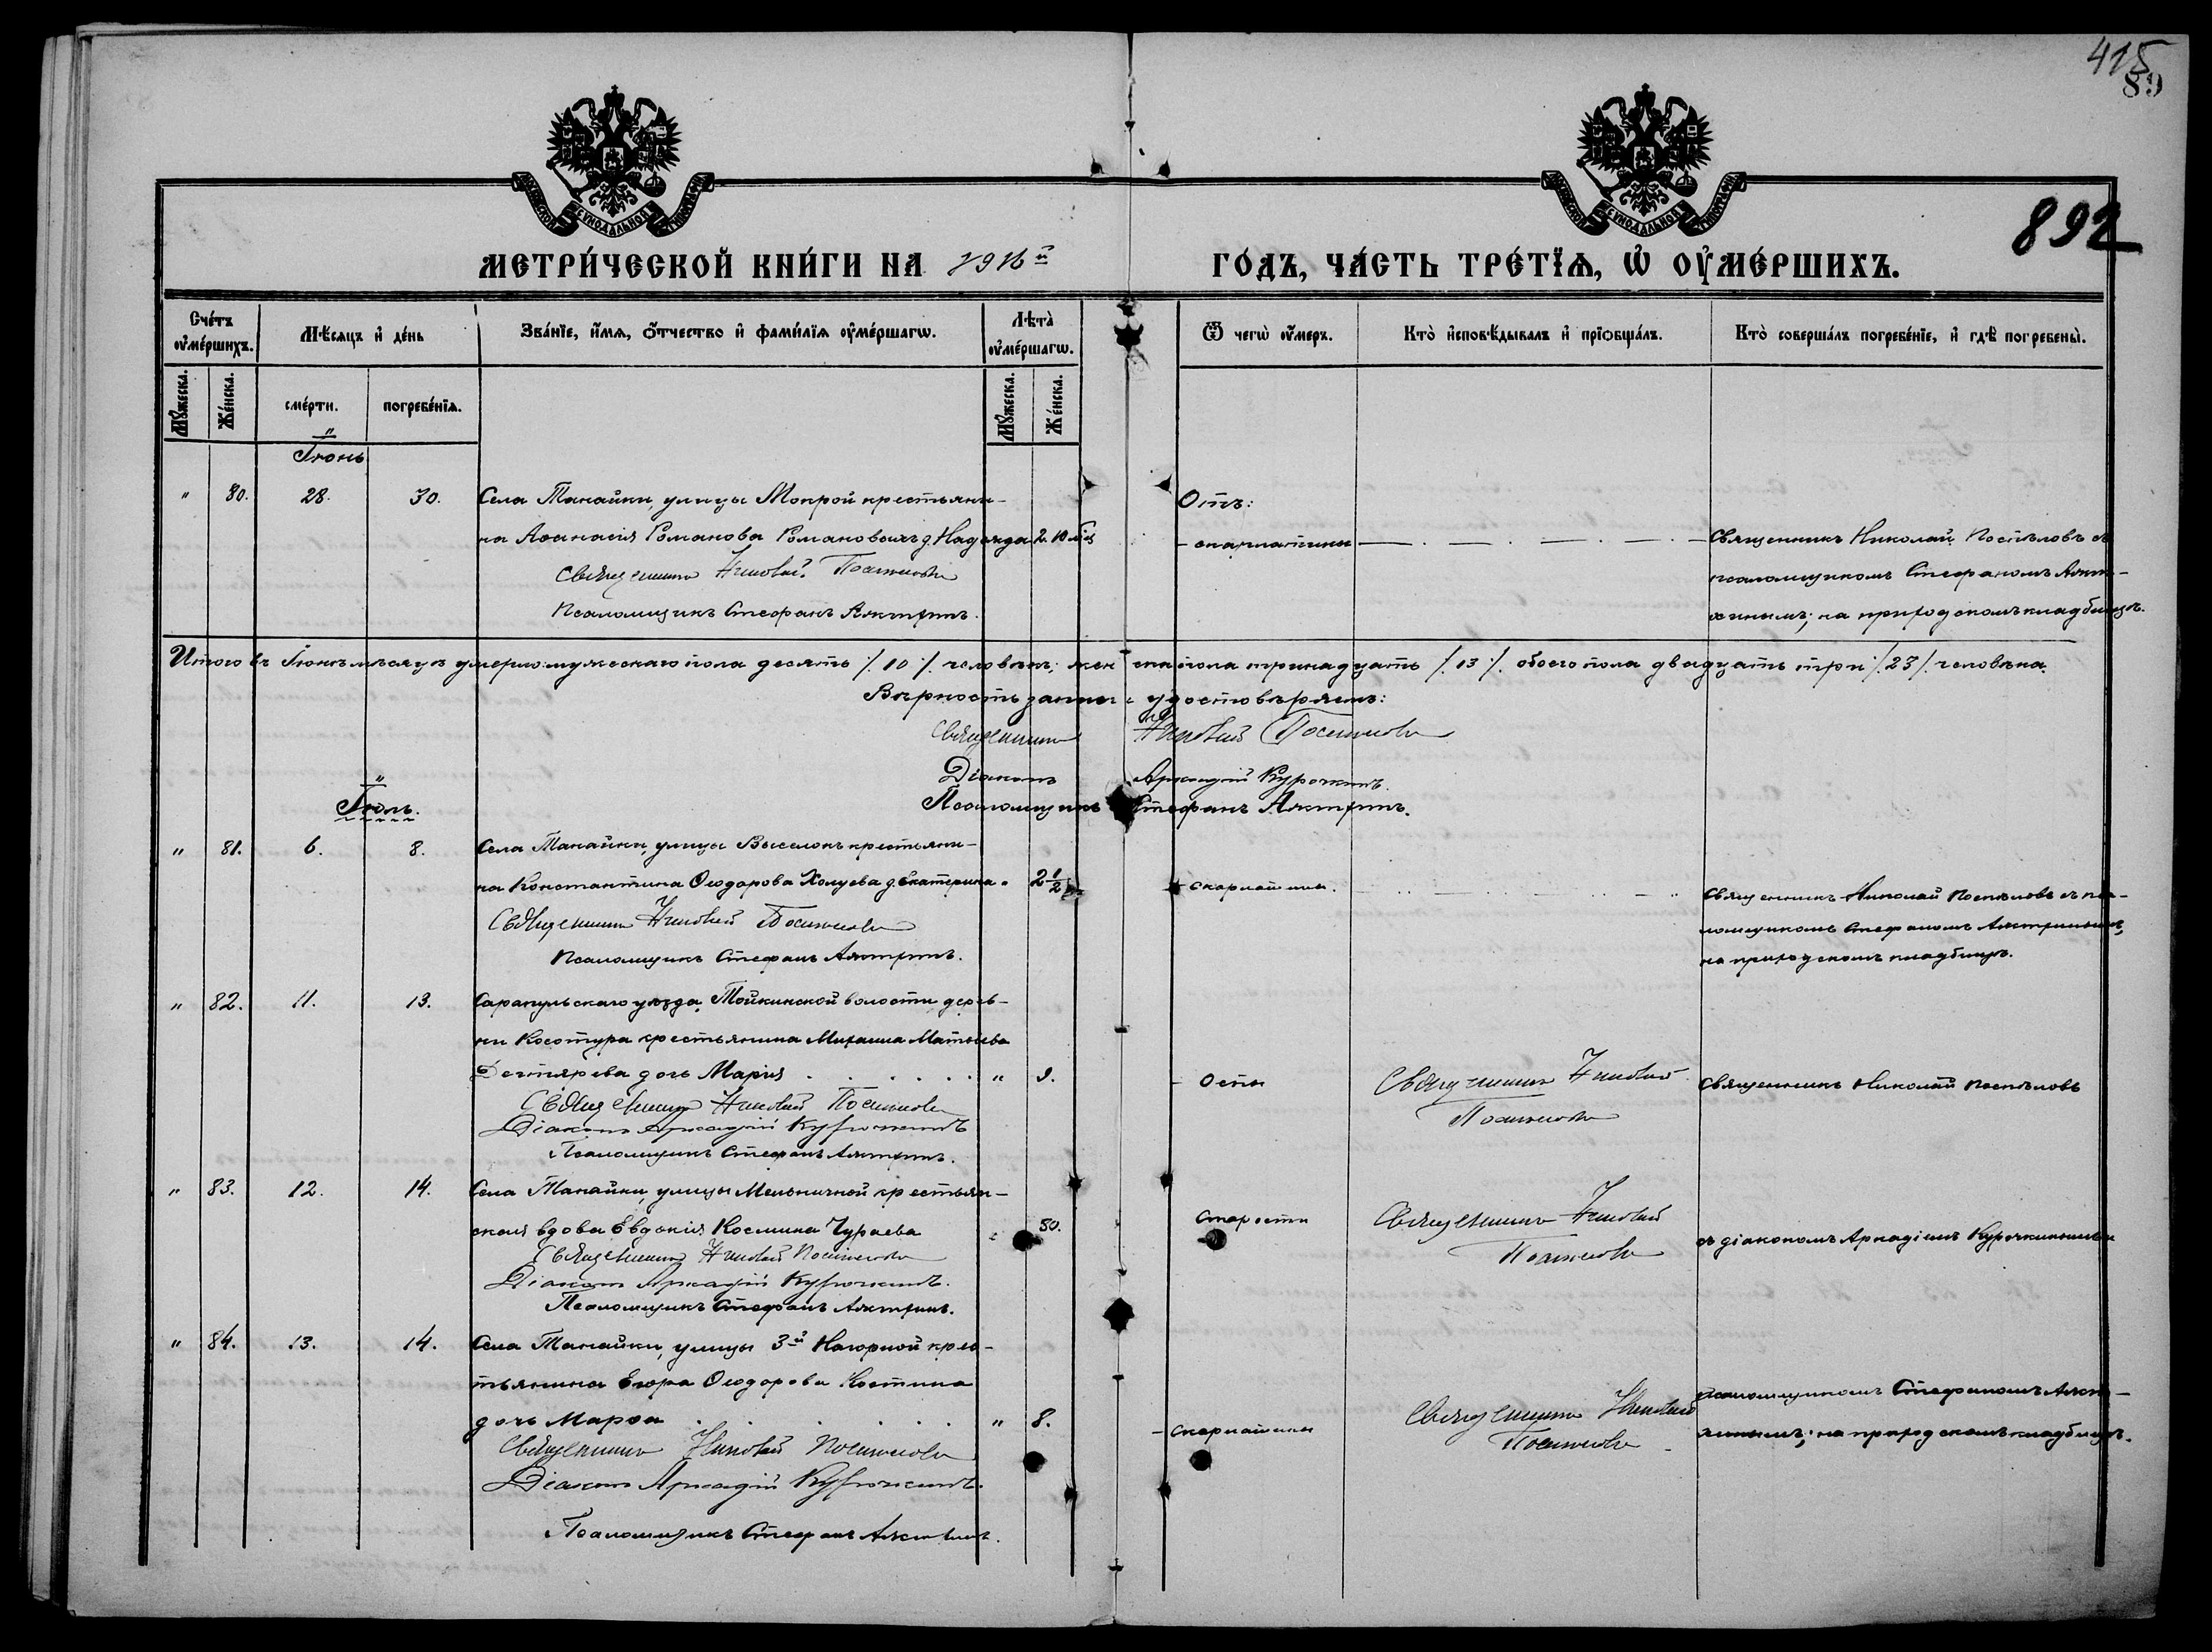 415
89
892
МЕТРИ́ЧЕСКОЙ КНИ́ГИ НА 1916й ГО́ДЪ, ЧА́СТЬ ТРЕ́ТЇѦ, Ѡ ОУ҆МЕ́РШИХЪ.
Сче́тъ оу҆ме́ршихъ.
Мѣ́сяцъ и҆ де́нь
Зва́нїе, и҆́мѧ, ѻ҆́тчество и҆ фами́лїѧ оу҆ме́ршагѡ.
Лѣта̀ оу҆ме́ршагѡ.
Ѿ чегѡ̀ оу҆́меръ.
Кто̀ и҆сповѣ́дывалъ и҆ прїѡбща́лъ.
Кто̀ соверша́лъ погребе́нїе, и҆ гдѣ̀ погребены̀.
Мꙋ́жеска.
Же́нска.
сме́рти.
погребе́нїѧ.
Мꙋ́жеска.
Же́нска.
Іюнь
" 80. 28. 30. Села Танайки, улицы Мокрой крестьяни-
на Аѳанасія Романова Романовыхъ д. Надежда 2.10
Священникъ Николай Поспѣловъ
Псаломщикъ Стефанъ
Отъ:
- скарлатины
Священникъ Николай Поспѣловъ съ
псаломщикомъ Стефаномъ
на приходскомъ кладбищѣ.
Итого въ Іюнѣ мѣсяцѣ умерло: мужескаго пола десять /.10./. человѣкъ; женска пола тринадцать /.13./. обоего пола двадцать три /.23/. человѣка.
Вѣрность записи удостовѣряемъ:
Священникъ Николай Поспѣловъ
Діаконъ Аркадій Курочкинъ.
Псаломщикъ Стефанъ
Іюль.
" 81. 6. 8. Села Танайки, улицы Выселокъ крестьяни-
на Константина Ѳеодорова Холуева д. Екатерина 2 1/2
Священникъ Николай Поспѣловъ
Псаломщикъ Стефанъ
- скарлатины.
Священникъ Николай Поспѣловъ съ пса-
ломщикомъ Стефаномъ
на приходскомъ кладбищѣ.
" 82. 11. 13. Сарапульскаго уѣзда, Тойкинской волости дерев-
ни Косотура крестьянина Михаила Матвѣева
Дегтярева дочь Марія " 9.
Священникъ Николай Поспѣловъ
Діаконъ Аркадій Курочкинъ
Псаломщикъ Стефанъ
- Оспы
Священникъ Николай
Поспѣловъ
Священникъ Николай Поспѣловъ
" 83. 12. 14. Села Танайки, улицы Мельничной крестьян-
ская вдова Евдокія Космина Чураева 80.
Священникъ Николай Поспѣловъ
Діаконъ Аркадій Курочкинъ.
Псаломщикъ Стефанъ
Старости
Священникъ Николай
Поспѣловъ
съ діакономъ Аркадіемъ Курочкинымъ и
" 84. 13. 14. Села Танайки, улицы 3й Нагорной крес-
тьянина Егора Ѳеодорова Костина
дочь Марѳа " 8.
Священникъ Николай Поспѣловъ
Діаконъ Аркадій Курочкинъ.
Псаломщикъ Стефанъ
- скарлатины
Священникъ Николай
Поспѣловъ
псаломщикомъ Стефаномъ
на приходскомъ кладбищѣ.